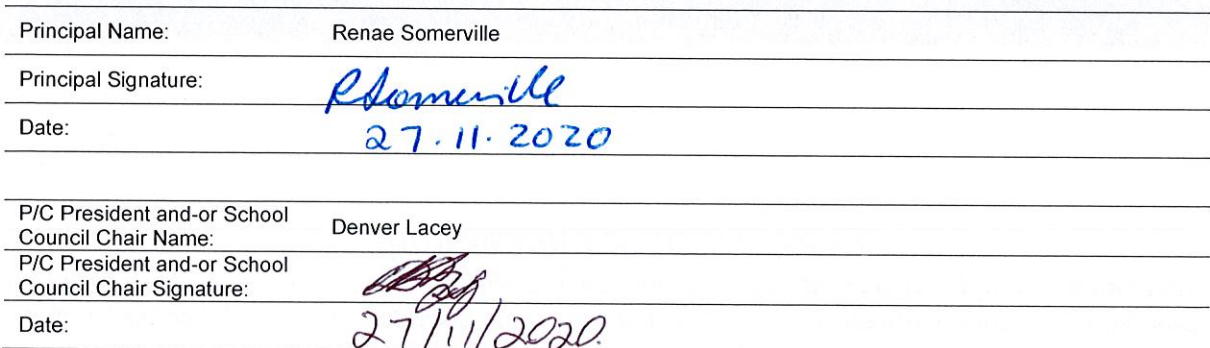 Principal Name: Renae Somerville
Principal Signature: RSomerville
Date: 27.11.2020
P/C President and-or School
Council Chair Name: Denver Lacey
P/C President and-or School
Council Chair Signature:
Date: 27/11/2020.